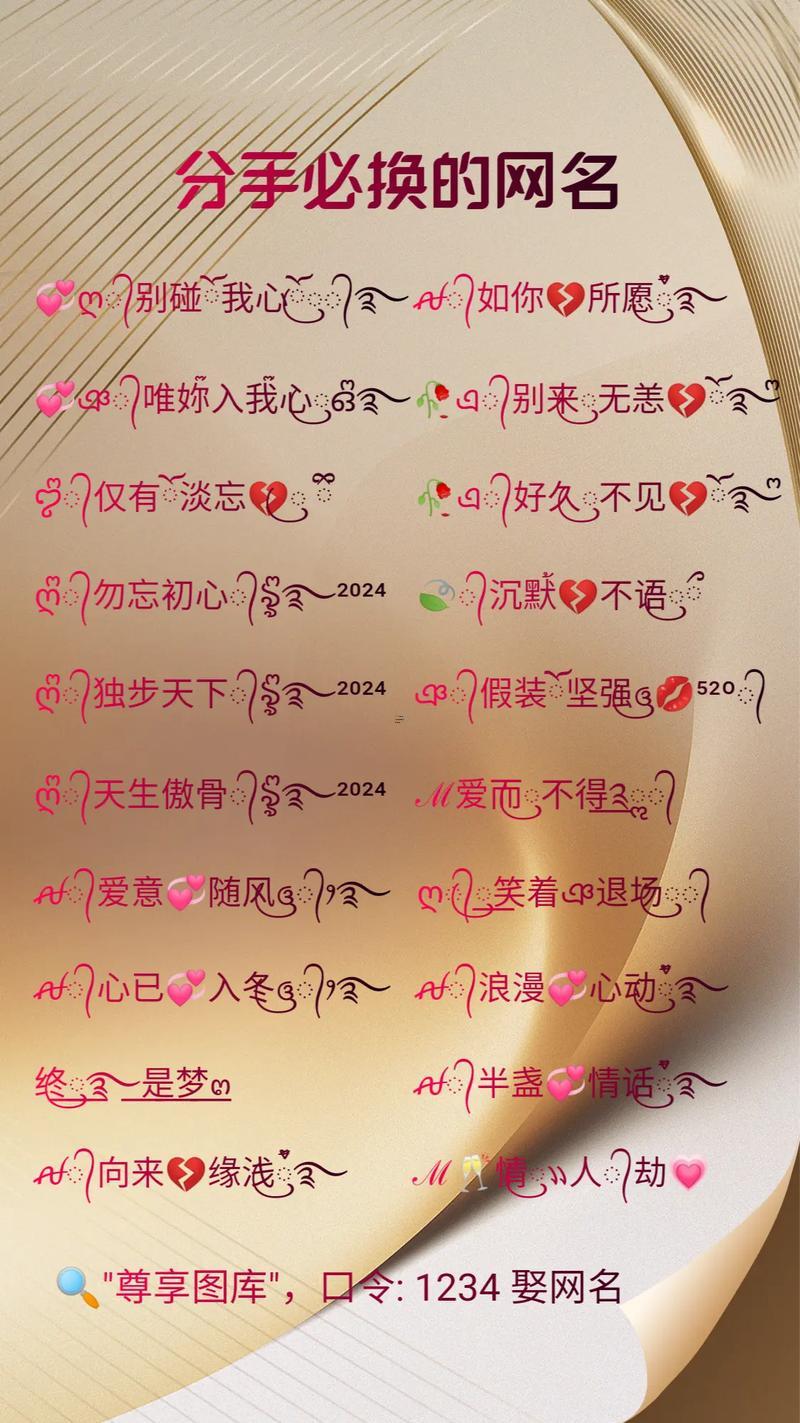 分手必换的网名
💞ღ᭄别碰ོ我心ོꦿ࿐ ꪝ᭄如你💔所愿ꦿ࿐
💞ঞ᭄唯妳入我心ꦿ໖࿐ 🥀এ᭄别来ꦿ无恙💔ོ࿐ო
ღ᭄仅有ོ淡忘💔ꦿྀ 🥀এ᭄好久ꦿ不见💔ོ࿐ო
ღ᭄勿忘初心᭄ꦿ࿐²⁰²⁴ 🍃᭄沉默💔不语ꦿ
ღ᭄独步天下᭄ꦿ࿐²⁰²⁴ ঞ᭄假装ོ坚强ꦿ💋⁵²⁰᭄
ღ᭄天生傲骨᭄ꦿ࿐²⁰²⁴ ℳ爱而ꦿ不得ꦿ᭄
ꪝ᭄爱意💞随风ꦿ᭄࿐ ღ᭄ꦿ笑着ঞ退场ꦿ᭄
ꪝ᭄心已💞入冬ꦿ᭄࿐ ꪝ᭄浪漫💞心动ꦿ࿐
终ꦿ࿐是梦ო ꪝ᭄半盏💞情话ꦿ࿐
ꪝ᭄向来💔缘浅ꦿ࿐ ℳ🥂情ꦿ人᭄劫💗
🔍"尊享图库"，口令: 1234 娶网名